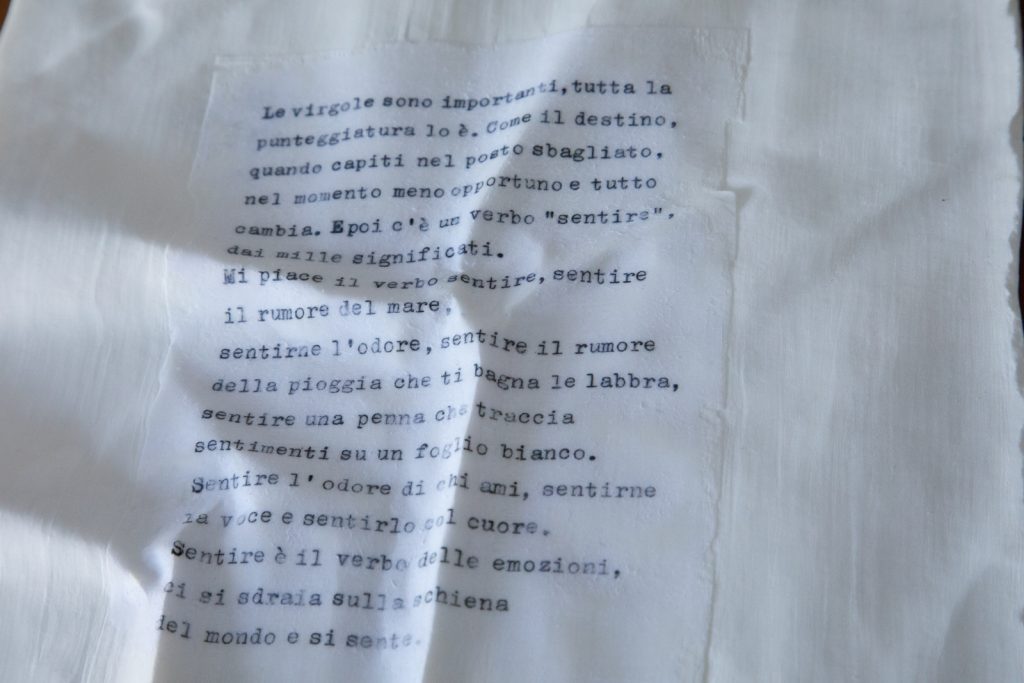 Le virgole sono importanti, tutta la
punteggiatura lo è. Come il destino,
quando capiti nel posto sbagliato,
nel momento meno opportuno e tutto
cambia. E poi c'è un verbo "sentire",
dai mille significati.
Mi piace il verbo sentire, sentire
il rumore del mare,
sentirne l'odore, sentire il rumore
della pioggia che ti bagna le labbra,
sentire una penna che traccia
sentimenti su un foglio bianco.
Sentire l'odore di chi ami, sentirne
la voce e sentirlo col cuore.
Sentire è il verbo delle emozioni,
ci si sdraia sulla schiena
del mondo e si sente.